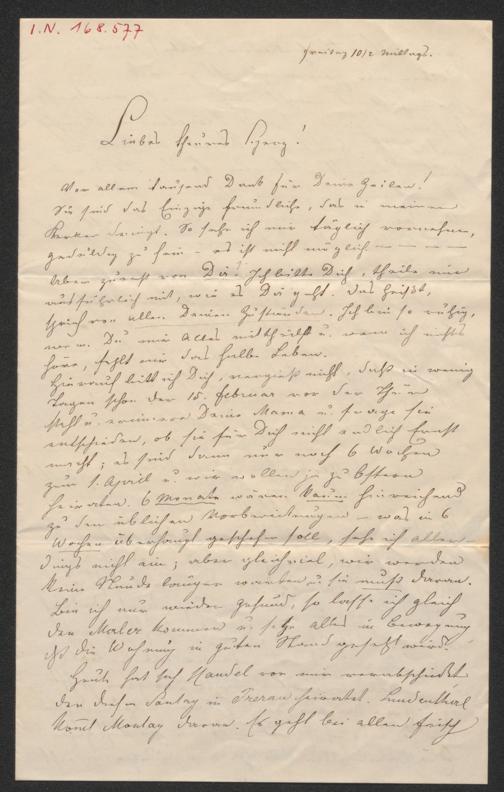 I.N. 168.577
Freitag 10/2 Mittags.
Liebes theures Herz!
Vor allem tausend Dank für Deine Zeilen!
Sie sind das Einzige freundliche, das in meinen
Kerker dringt. So sehr ich mir täglich vornehme,
geduldig zu sein – es ist nicht möglich – – – –
Aber zuerst von Dir. Ich bitte Dich, theile mir
ausführlich mit, wie es Dir geht. Das heißt,
sprich von allen Deinen Zuständen. Ich bin so ruhig,
wenn Du mir Alles mittheilst u. wenn ich nichts
höre, fehlt mir das halbe Leben.
Hierauf bitt ich Dich, vergiß nicht, daß in wenig
Tagen schon der 15. Februar vor der Thür
steht u. erinnere Deine Mama u. frage sie
entschieden, ob sie für Dich nicht endlich Ernst
macht; es sind dann nur noch 6 Wochen
zum 1. April u. wir wollen ja zu Ostern
heiraten. 6 Monate wären kaum hinreichend
zu den üblichen Vorbereitungen – was in 6
Wochen überhaupt geschehen soll, sehe ich aller-
dings nicht ein; aber gleichviel, wir werden
keine Stunde länger warten u. sie muß daran.
Bin ich nur wieder gesund, so lasse ich gleich
den Maler kommen u. setze alles in Bewegung
daß die Wohnung in guten Stand gesetzt wird.
Heute hat sich Handel von mir verabschiedet
der diesen Sontag in Meran heiratet. Lindenthal
kom̄t Montag daran. Es geht bei allen frisch